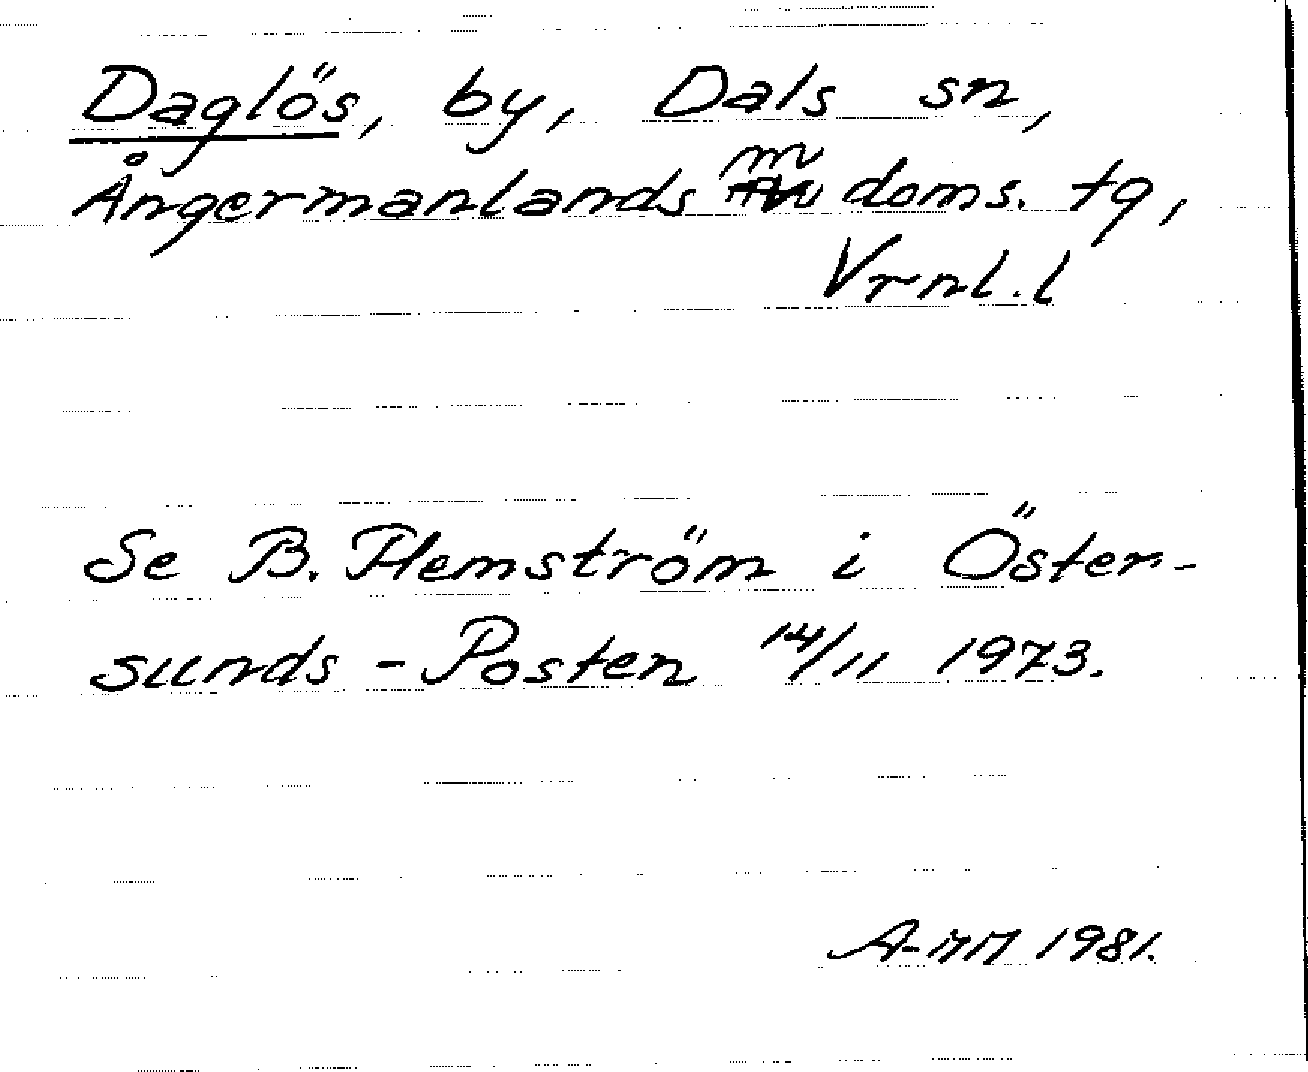 Daglös, by, Dals sn,
Ångermanlands m doms. tg,
Vrnl. l
Se B. Hemström i Öster-
sunds-Posten 14/11 1973.
A-MM 1981.